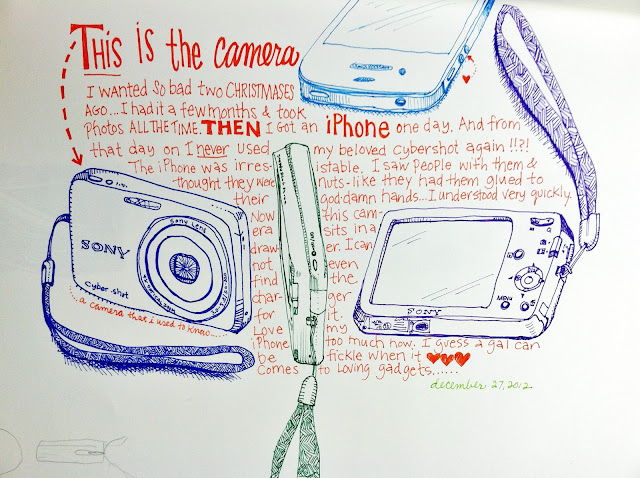 THIS is the camera
I WANTED SO bad two CHRISTMASES
AGO...I had it a few months & took
Photos ALL THE TIME. THEN I Got an iPhone one day. And from
that day on I never used my beloved cybershot again!!?!
The iPhone was irres- istable. I saw People with them &
thought they were nuts-like they had them glued to
their God-damn hands...I understood very quickly.
Now this cam-
era sits in a
draw- er. I can
not even
find the
char- ger
for it.
Love my
iPhone too much now. I guess a gal can
be fickle when it
Comes to Loving gadgets......
december 27, 2012
Sony Lens
SONY
Cyber-shot
...a camera that i used to know....
SONY
MENU